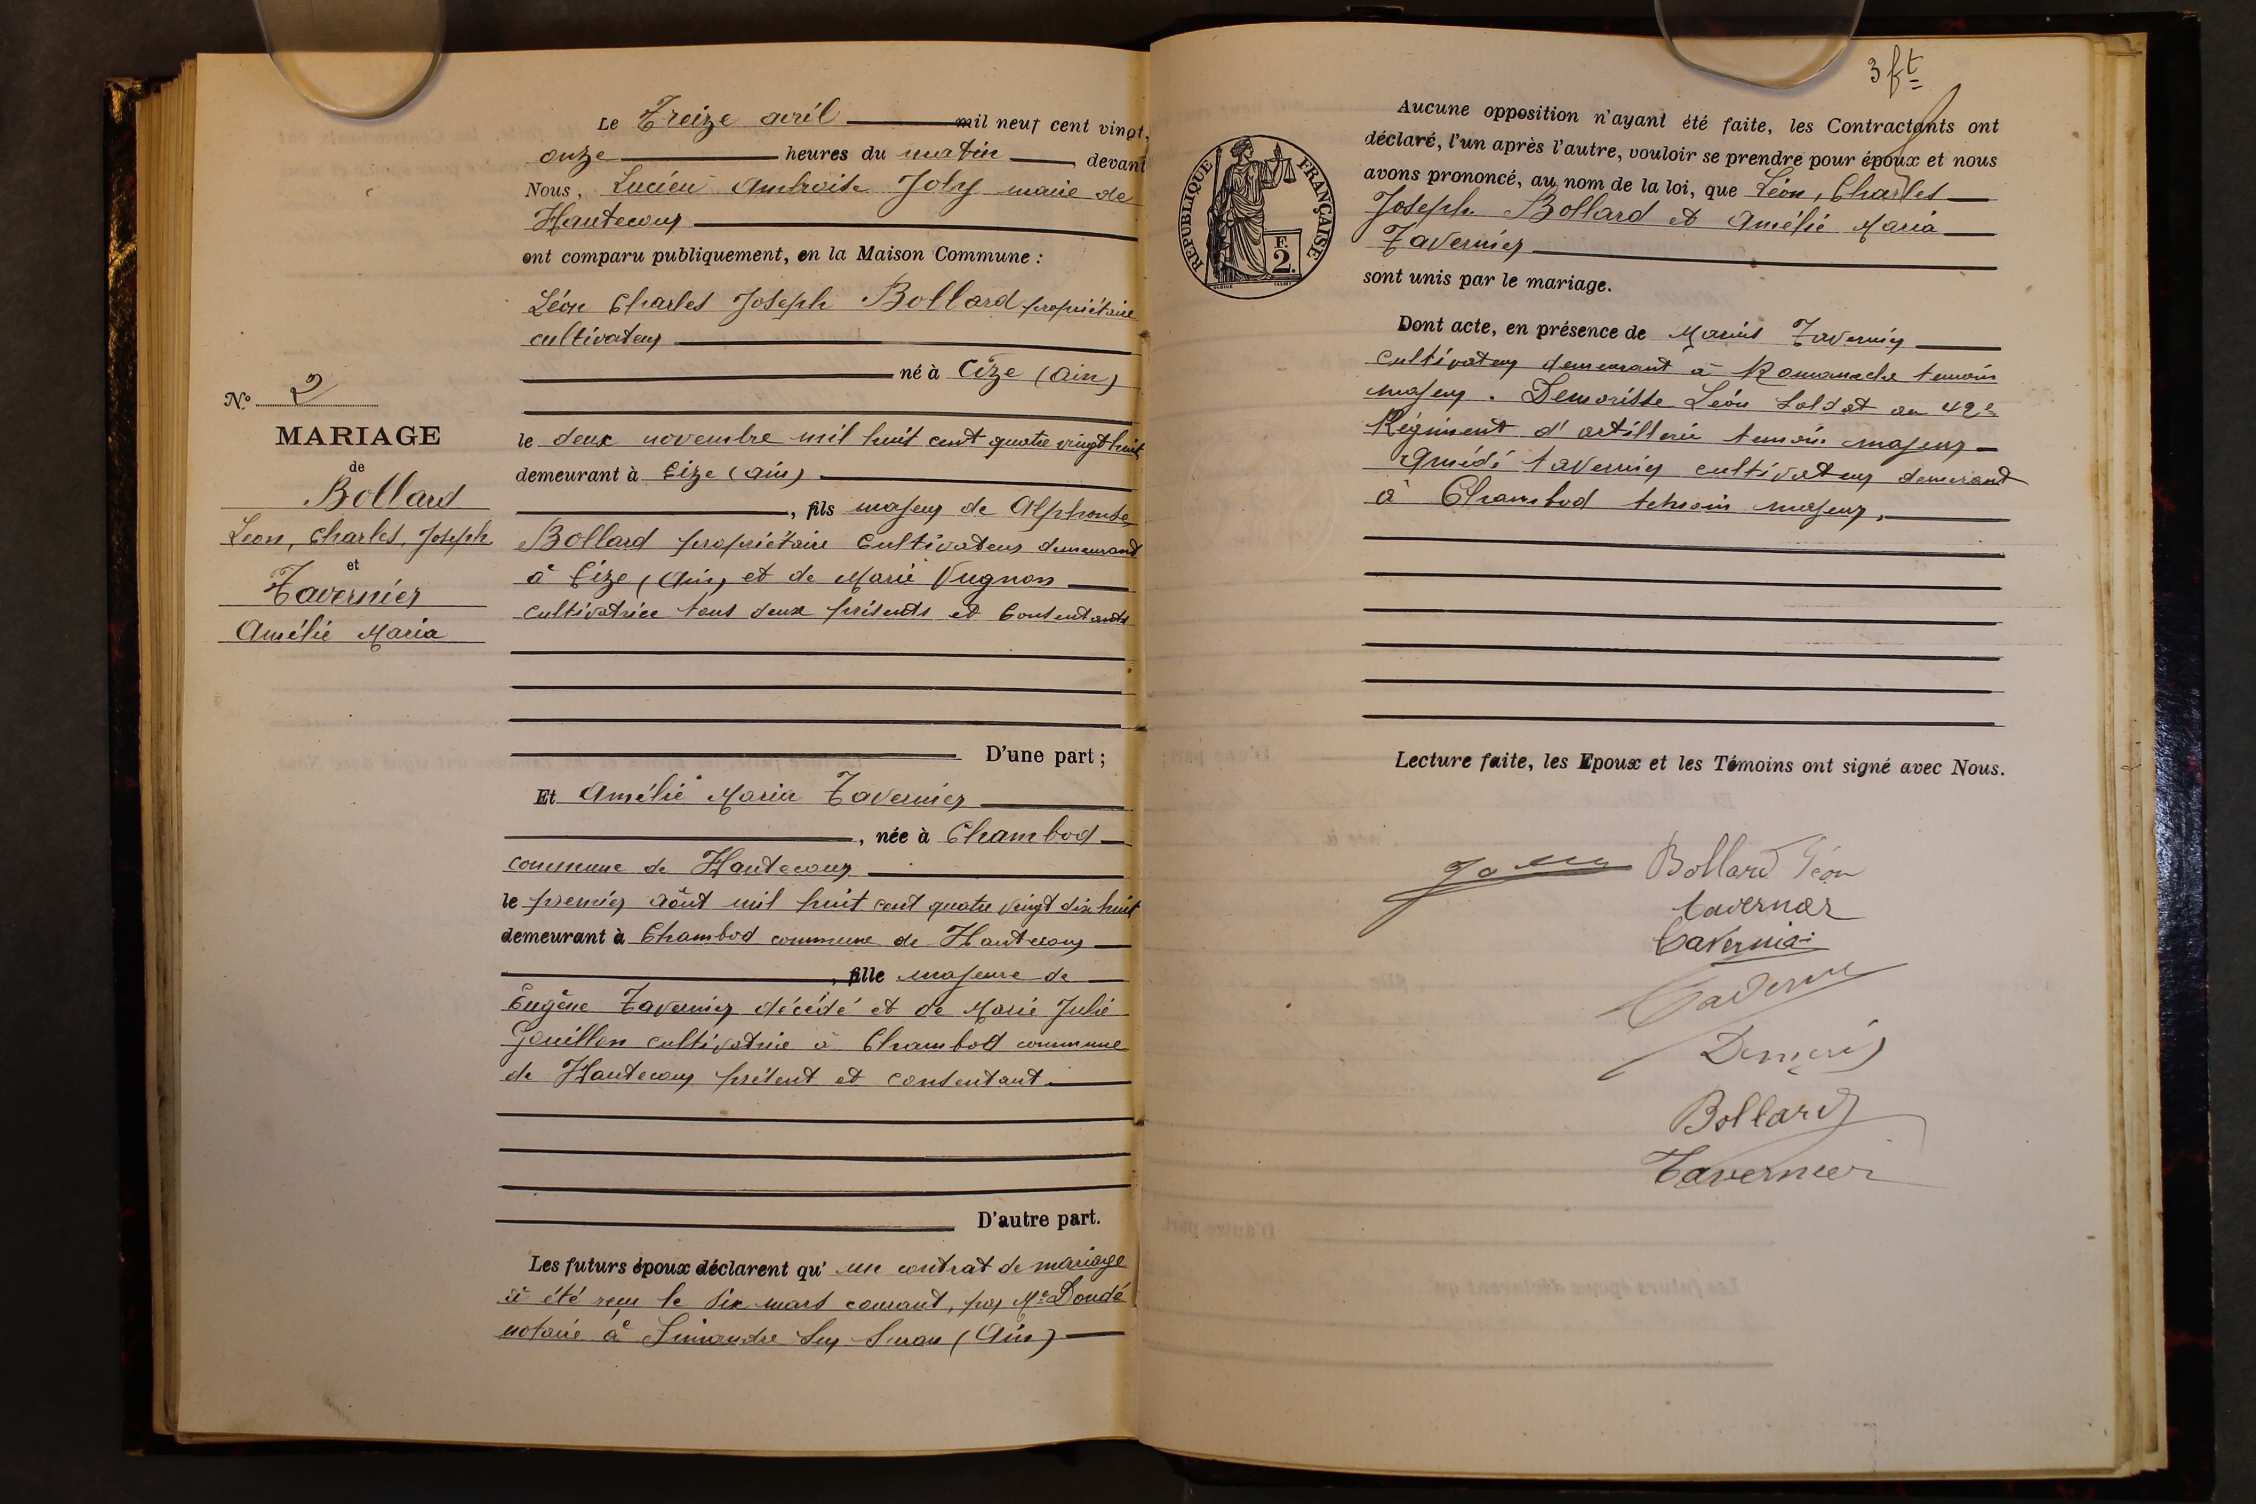 Le Treize avril mil neuf cent vingt,
onze heures du matin, devant
Nous, Lucien Ambroise Joly maire de
Hautecour
ont comparu publiquement, en la Maison Commune :
Léon Charles Joseph Bollard propriétaire
cultivateur
né à Cize (Ain)
le deux novembre mil huit cent quatre vingt huit
demeurant à Cize (Ain)
, fils majeur de Alphonse
Bollard propriétaire Cultivateur demeurant
à Cize (Ain) et de Marie Vugnon
cultivatrice tous deux présents et Consentants
D'une part ;
Et Amélie Maria Tavernier
, née à Chambod
commune de Hautecour
le premier août mil huit cent quatre vingt dix huit
demeurant à Chambod commune de Hautecour
, fille majeure de
Eugène Tavernier décédé et de Marie Julie
Gouillon cultivatrice à Chambod commune
de Hautecour présent et consentant
D'autre part.
Les futurs époux déclarent qu' un contrat de mariage
à été reçu le six mars courant, par Me Doudé
notaire à Simandre sur Suran (Ain)
No 2
MARIAGE
de
Bollard
Léon, Charles, Joseph
et
Tavernier
Amélie Maria
3 ft
RÉPUBLIQUE FRANÇAISE
F.
2.
Aucune opposition n'ayant été faite, les Contractants ont
déclaré, l'un après l'autre, vouloir se prendre pour époux et nous
avons prononcé, au nom de la loi, que Léon, Charles
Joseph Bollard et Amélie Maria
Tavernier
sont unis par le mariage.
Dont acte, en présence de Marius Tavernier
cultivateur demeurant à Romanèche temoin
majeur. Demorisse Léon soldat au 42e
Régiment d'artillerie temoin majeur
Amédé tavernier cultivateur demeurant
à Chambod temoin majeur,
Lecture faite, les Epoux et les Témoins ont signé avec Nous.
Joly
Bollard Léon
tavernier
Tavernier
Bollard
Tavernier